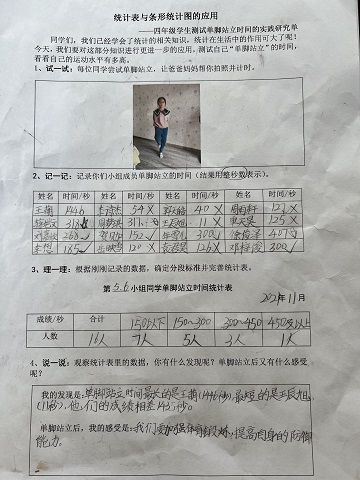 统计表与条形统计图的应用
——四年级学生测试单脚站立时间的实践研究单
同学们，我们已经学会了统计的相关知识，统计在生活中的作用可大了呢！
今天，我们要对这部分知识进行更进一步的应用，测试自己“单脚站立”的时间，
看看自己的运动水平有多高。
1、试一试：每位同学尝试单脚站立，让爸爸妈妈帮你拍照并计时。
2、记一记：记录你们小组成员单脚站立的时间（结果用整秒数表示）。
姓名 时间/秒 姓名 时间/秒 姓名 时间/秒 姓名 时间/秒
1446 54 40 123
318 317 11 125
268 152 300 407
185 120 126 300
3、理一理：根据刚刚记录的数据，确定分段标准并完善统计表。
第 5.6 小组同学单脚站立时间统计表
2021年11月
成绩/秒 合计 150以下 150~300 300~450 450及以上
人数 16人 7人 5人 3人 1人
4、说一说：观察统计表里的数据，你有什么发现呢？单脚站立后又有什么感受
呢？
我的发现是：单脚站立时间最长的是王萌(1446秒)，最短的是王辰旭
(11秒)，他们的成绩相差1435秒。
单脚站立后，我的感受是：我们要加强体育锻炼，提高肉身的防御
能力。